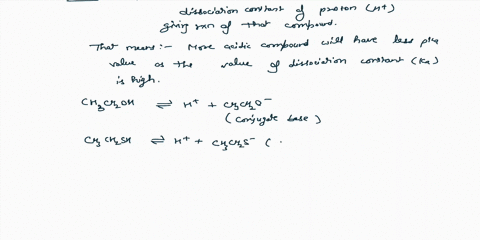 dissociation constant of proton (H+)
giving rxn of that compound.
That means:- More acidic compound will have less pka
value as the value of dissociation constant (Ka)
is high.
CH3CH2OH ⇌ H+ + CH3CH2O-
(conjugate base)
CH3CH2SH ⇌ H+ + CH3CH2S- (